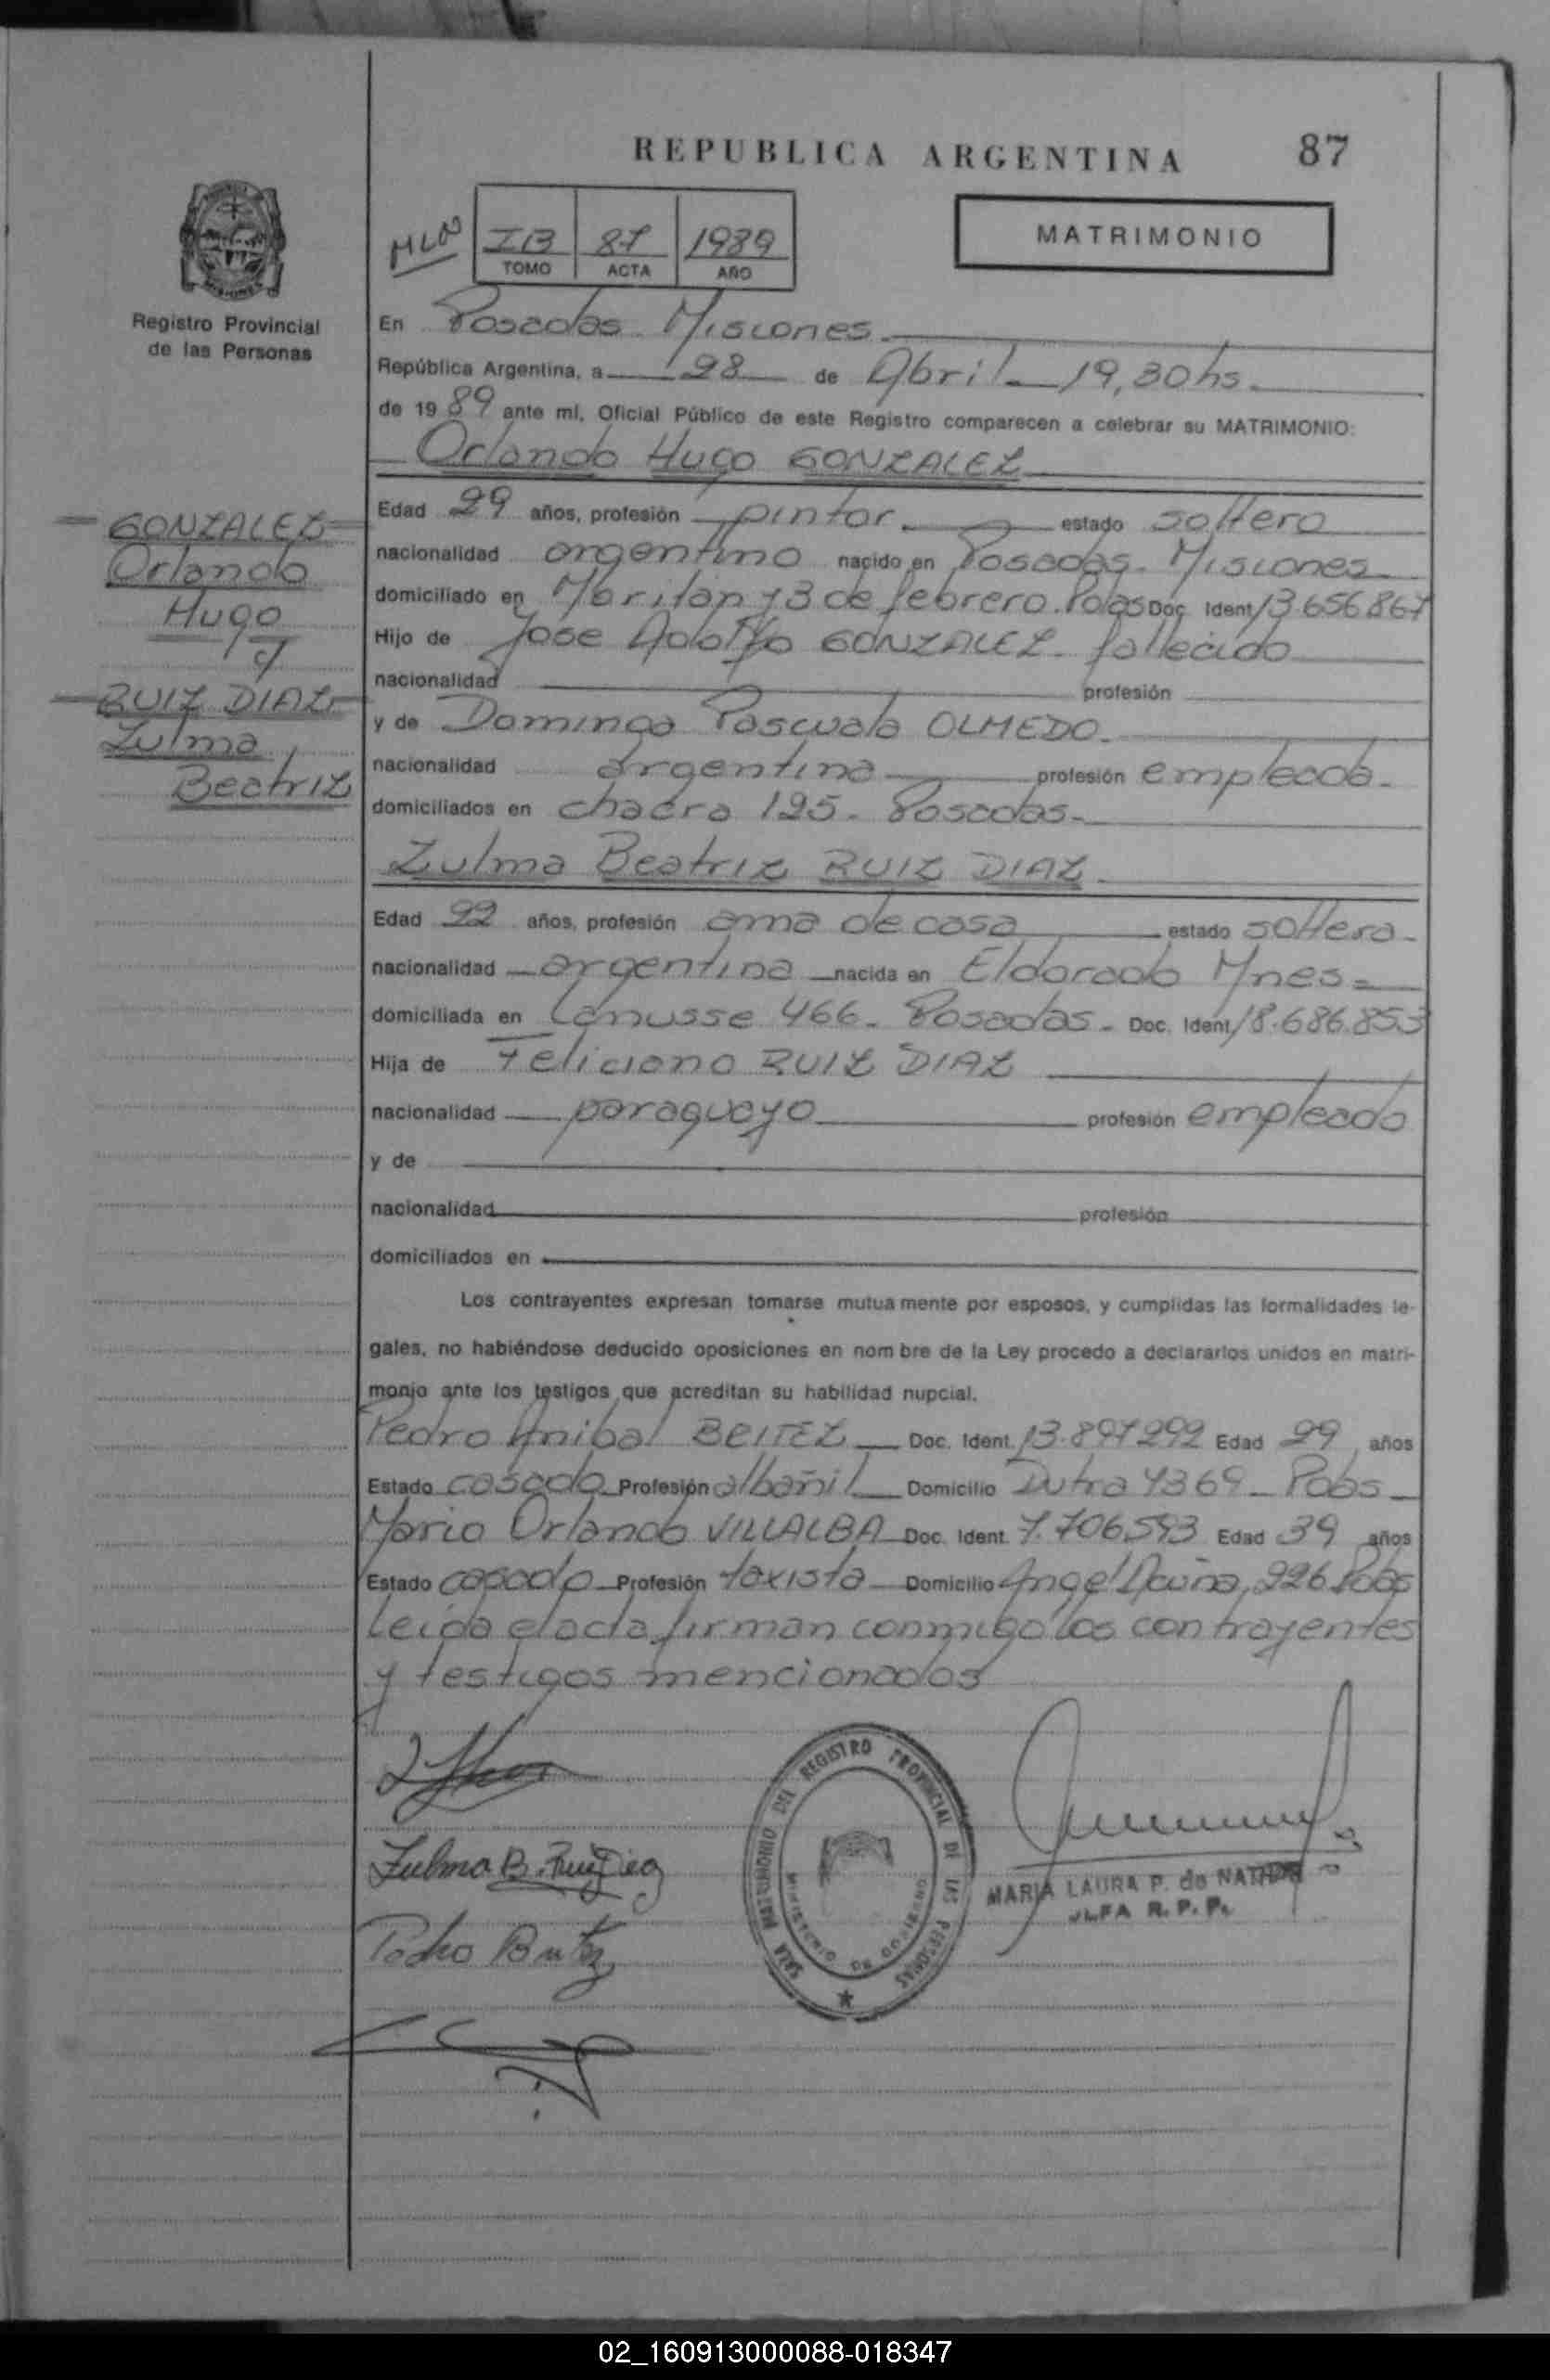 REPUBLICA ARGENTINA 87
MLN
IB 87 1989
TOMO ACTA AÑO
MATRIMONIO
Registro Provincial
de las Personas
En Posadas Misiones
República Argentina, a 28 de Abril 19,30hs.
de 1989 ante mi, Oficial Público de este Registro comparecen a celebrar su MATRIMONIO:
Orlando Hugo GONZALEZ
GONZALEZ
Orlando
Hugo
RUIZ DIAZ
Zulma
Beatriz
Edad 29 años, profesión pintor estado soltero
nacionalidad argentino nacido en Posadas Misiones
domiciliado en y 3 de febrero. Pdas Doc. Ident 13656867
Hijo de Jose Adolfo GONZALEZ fallecido
nacionalidad profesión
y de Dominga Pascuala OLMEDO
nacionalidad argentina profesión empleada
domiciliados en chacra 125 Posadas
Zulma Beatriz RUIZ DIAZ
Edad 22 años, profesión ama de casa estado soltera
nacionalidad argentina nacida en Eldorado Mnes
domiciliada en Lanusse 466 Posadas Doc. Ident 18.686.853
Hija de Feliciano RUIZ DIAZ
nacionalidad paraguayo profesión empleado
y de
nacionalidad profesión
domiciliados en
Los contrayentes expresan tomarse mutuamente por esposos, y cumplidas las formalidades le-
gales, no habiéndose deducido oposiciones en nombre de la Ley procedo a declararlos unidos en matri-
monio ante los testigos que acreditan su habilidad nupcial.
Pedro Anibal BEITEZ Doc. Ident. 13.897292 Edad 29 años
Estado casado Profesión albañil Domicilio Dutra 4369 Pdas
Mario Orlando VILLALBA Doc. Ident. 7.706593 Edad 39 años
Estado casado Profesión taxista Domicilio Angel Acuña 226 Pdas
Leida el acta firman conmigo los contrayentes
y testigos mencionados
Zulma B. Ruiz Diaz
SALA MATRIMONIO DEL REGISTRO PROVINCIAL DE LAS PERSONAS
MINISTERIO DE GOBIERNO
MARIA LAURA P. de
JEFA R. P. P.
02_160913000088-018347